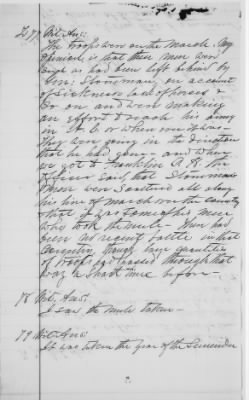 77 Wit. Ans:
The troops were on the march. My
opinion is that these men were
such as had been left behind by
Gen: Stoneman, on account
of sickness lack of horses &
so on and were making
an effort to reach his army
in N. C. or where ever it was.
They were going in the direction
that he had gone - and when
we got to Franklin the
officer said that Stoneman's
men were scattered all along
his line of march over the country
& that it was some of his men
who took the mule. There had
been no recent battle in that
though large quantities
of troops had passed through that
way a short time before -
78 Wit. Ans:
I saw the mule taken -
79 Wit. Ans:
It was taken the year of the surrender